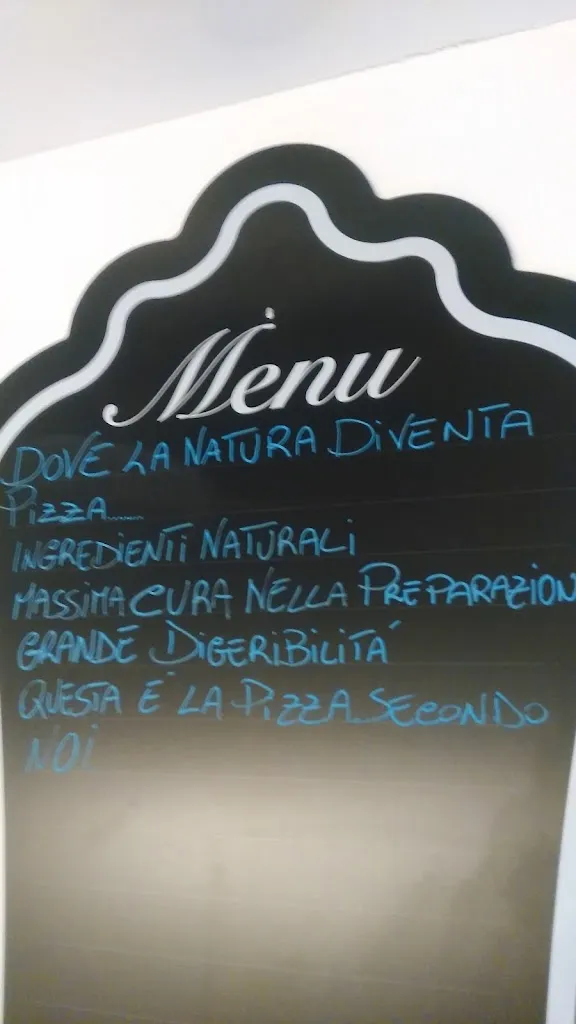 Menu
DOVE LA NATURA DIVENTA
PIZZA......
INGREDIENTI NATURALI
MASSIMA CURA NELLA PREPARAZION
GRANDE DIGERIBILITÁ
QUESTA É LA PIZZA SECONDO
NOI